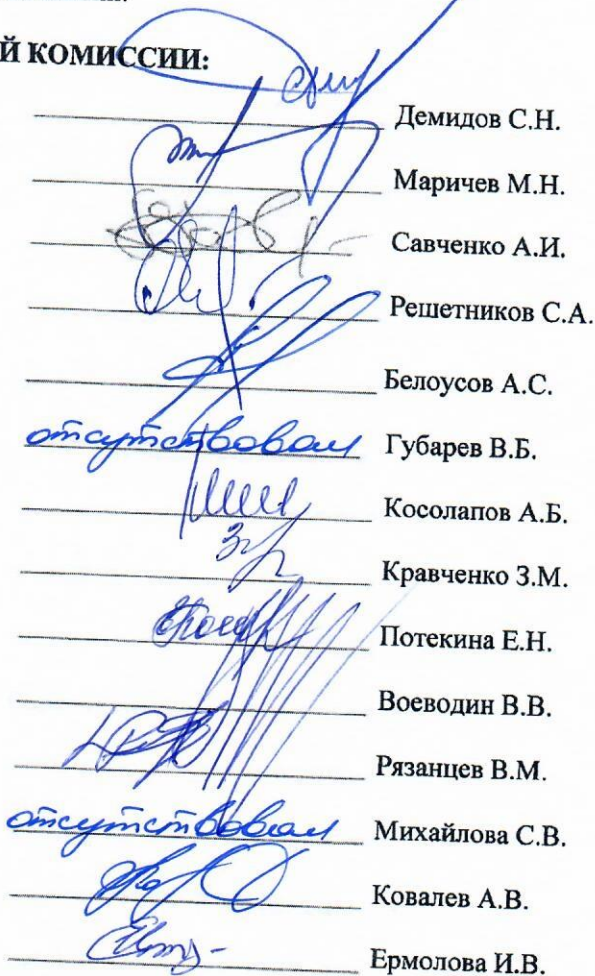 Й КОМИССИИ:
Демидов С.Н.
Маричев М.Н.
Савченко А.И.
Решетников С.А.
Белоусов А.С.
отсутствовал Губарев В.Б.
Косолапов А.Б.
Кравченко З.М.
Потекина Е.Н.
Воеводин В.В.
Рязанцев В.М.
отсутствовал Михайлова С.В.
Ковалев А.В.
Ермолова И.В.